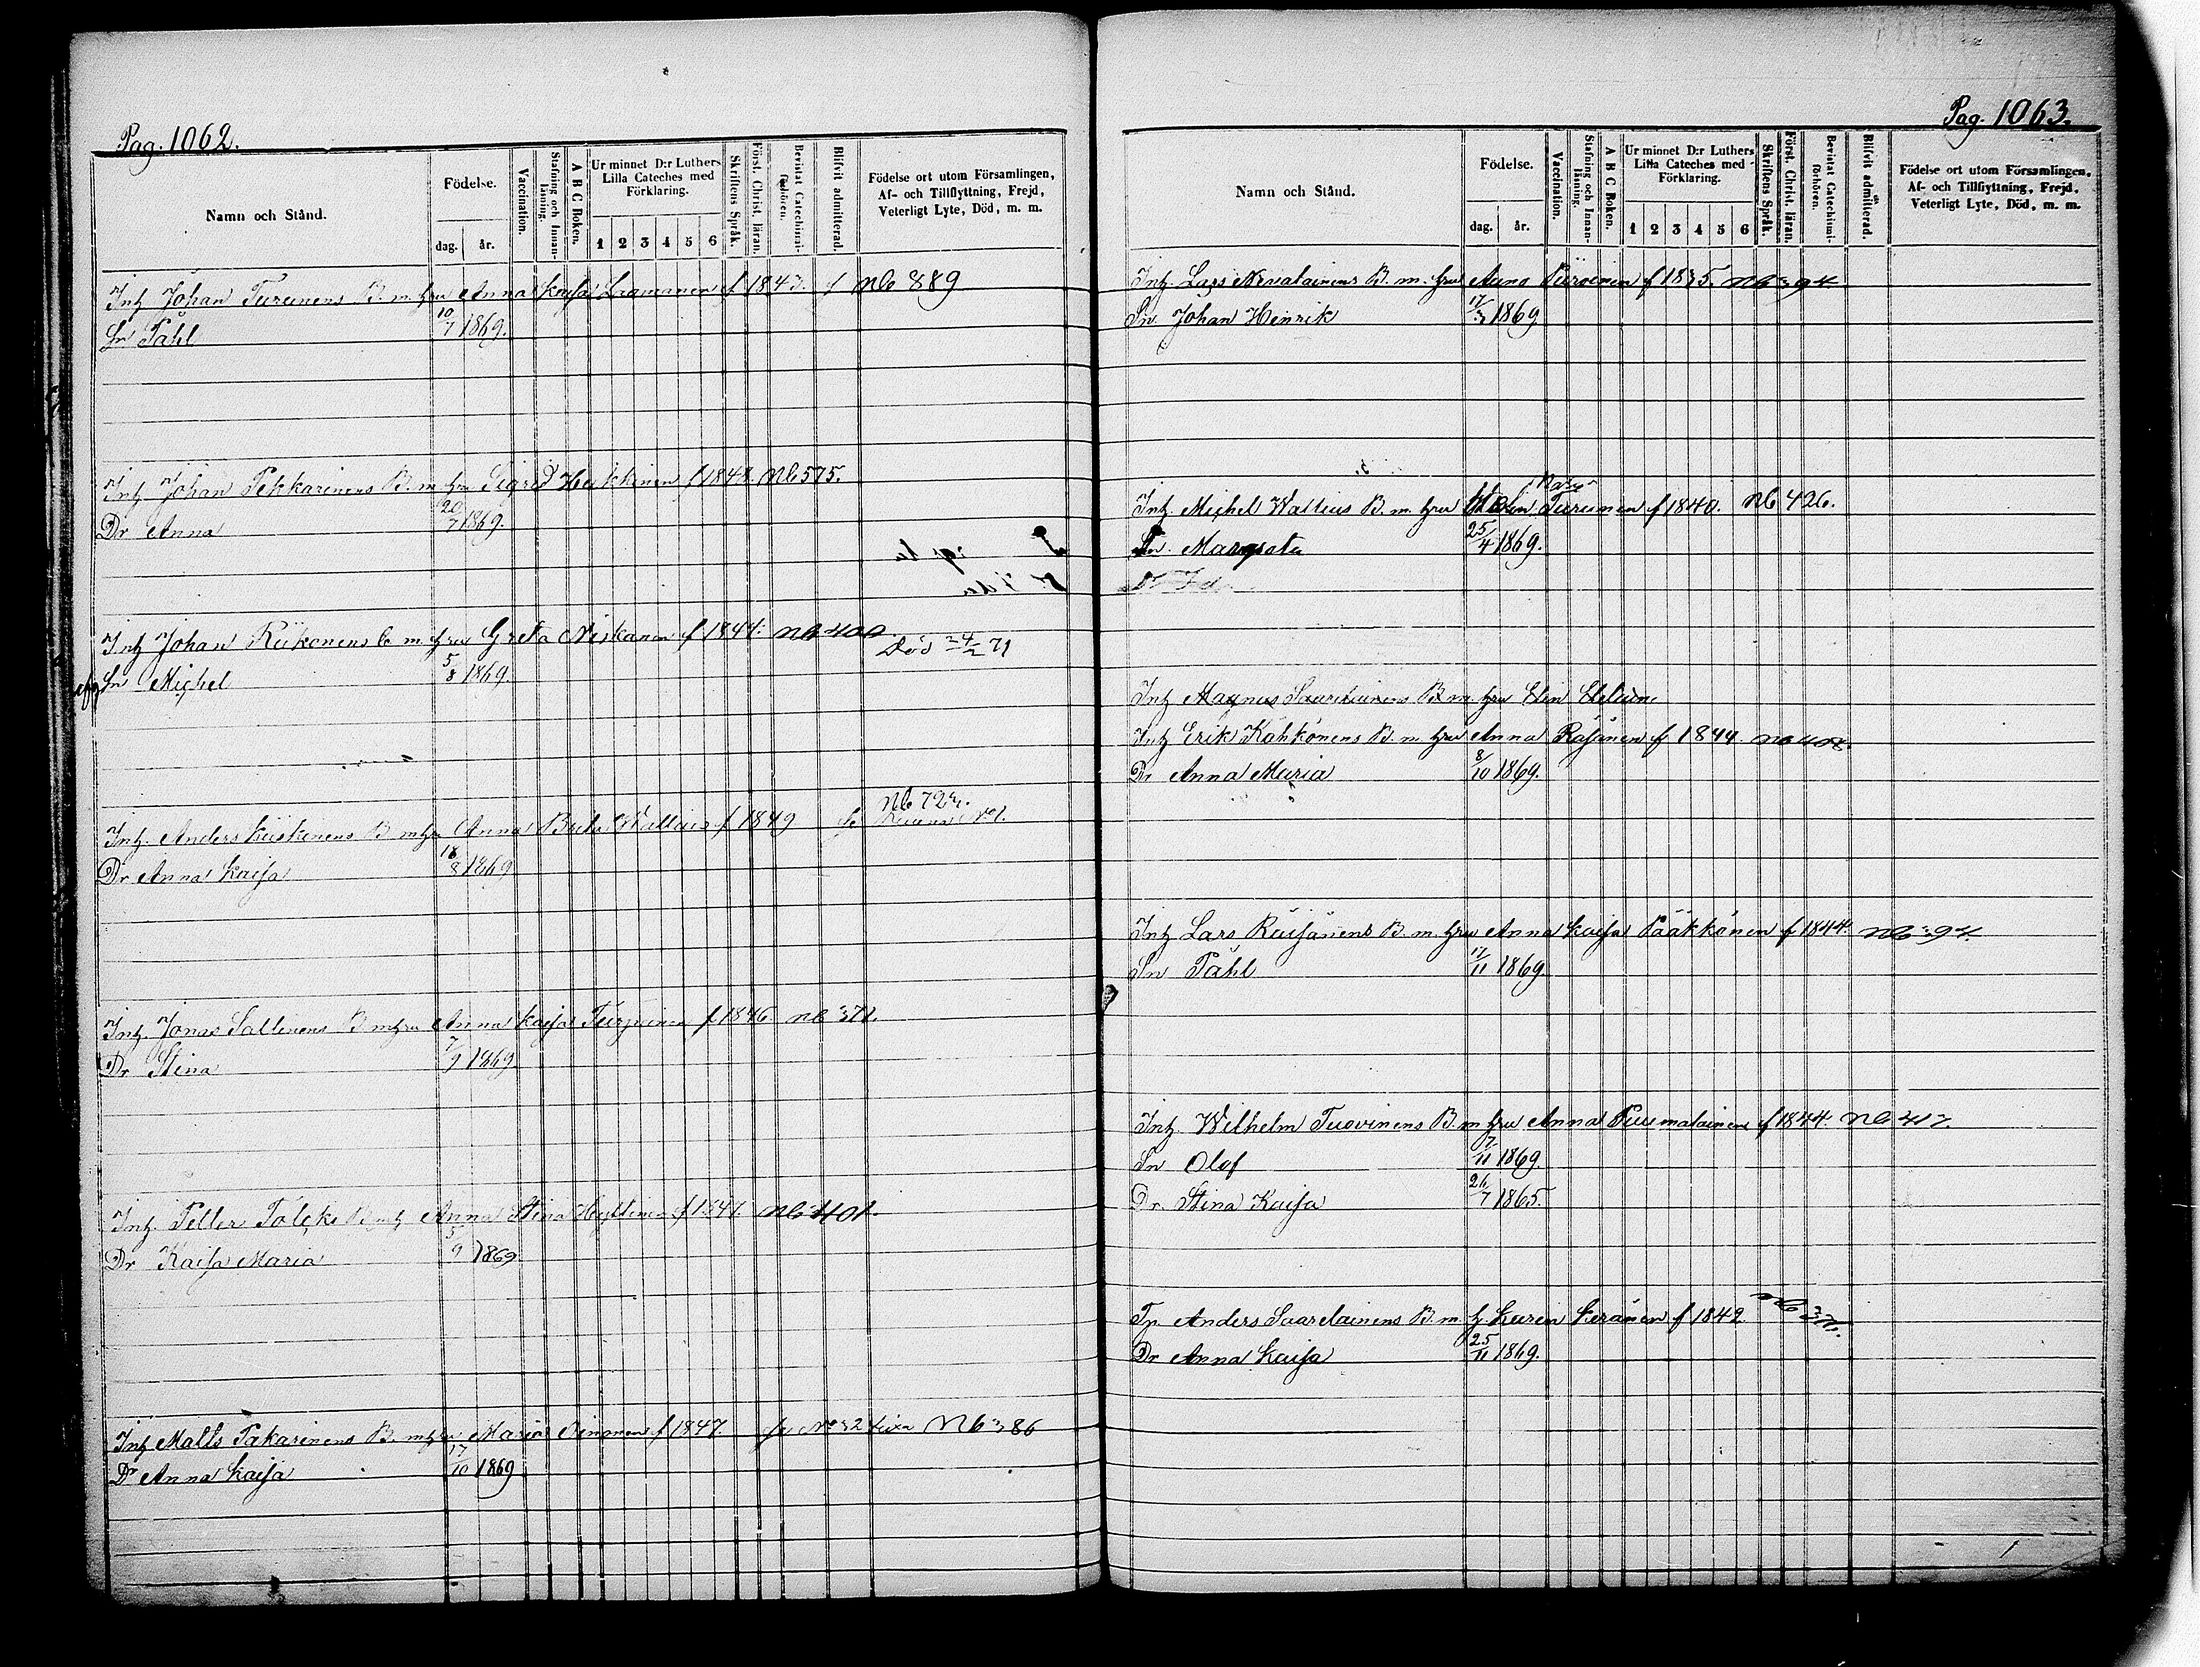 Pag. 1062.
Namn och Stånd.
Födelse.
dag. år.
Vaccination.
Stafning och Innanläsning.
A B C Boken.
Ur minnet D:r Luthers Lilla Cateches med Förklaring.
1 2 3 4 5 6
Skriftens Språk.
Först. Christ. läran.
Bevistat Catechismiförhören.
Blifvit admitterad.
Födelse ort utom Församlingen, Af- och Tillflyttning, Frejd, Veterligt Lyte, Död, m. m.
Inh. Johan Turunens B. m hru Anna Kajsa f 1843. Nb 889
Sn Påhl 10/7 1869.
Inh. Johan Pekkarinens B. m hru Sigrid Heikkinen f 1848. Nb 575.
Dr Anna 20/7 1869.
Inh Johan Riikonens b m hru Greta Niskanen f 1844. Nb 400.
Död 24/2 71
Sn Michel 5/8 1869.
Nb 723.
Inh. Anders Kiiskinens B m hru Anna Brita Wattius f 1849 se
Dr Anna Kaisa 18/8 1869
Inh. Jonas Sallinens B m hru Anna Kaisa f 1846 Nb 371.
Dr Stina 7/9 1869
Inh. Petter Tolcki B m h Anna Stina Hyttinen f 1847. Nb 401.
Dr Kaisa Maria 5/9 1869.
Inh Matts Pakarinens B. m hru Maria Oinonen f 1847. se No 32 Nb 386
Dr Anna Kaisa 17/10 1869
Pag. 1063.
Namn och Stånd.
Födelse.
dag. år.
Vaccination.
Stafning och Innanläsning.
A B C Boken.
Ur minnet D:r Luthers Lilla Cateches med Förklaring.
1 2 3 4 5 6
Skriftens Språk.
Först. Christ. läran.
Bevistat Catechismiförhören.
Blifvit admitterad.
Födelse ort utom Församlingen, Af- och Tillflyttning, Frejd, Veterligt Lyte, Död, m. m.
Inh. Lars Nevalainens B. m. hru f 1835. Nb 394
Sn. Johan Henrik 1869
Inh. Michel Wattius B. m. hru Turunen f 1840. Nb 426.
Margreta 25/4 1869.
Inh Magnus B. m. hru Elin
Inh Erik Kähkönens B. m hru Anna Räsänen f 1844.
Dr Anna Maria 8/10 1869.
Inh. Lars Räisänens B. m. hru Anna Kaisa Pääkkönen f 1844. Nb 394.
Sn Påhl 17/11 1869.
Inh. Wilhelm Tuovinens B. m hru Anna Puumalainen f 1844. Nb 417.
Sn Olof 7/11 1869.
Dr. Stina Kaisa 26/7 1865.
Tp. Anders Saarelainens B. m h. Karin Keränen f 1842.
Dr Anna Kaisa 25/11 1869.